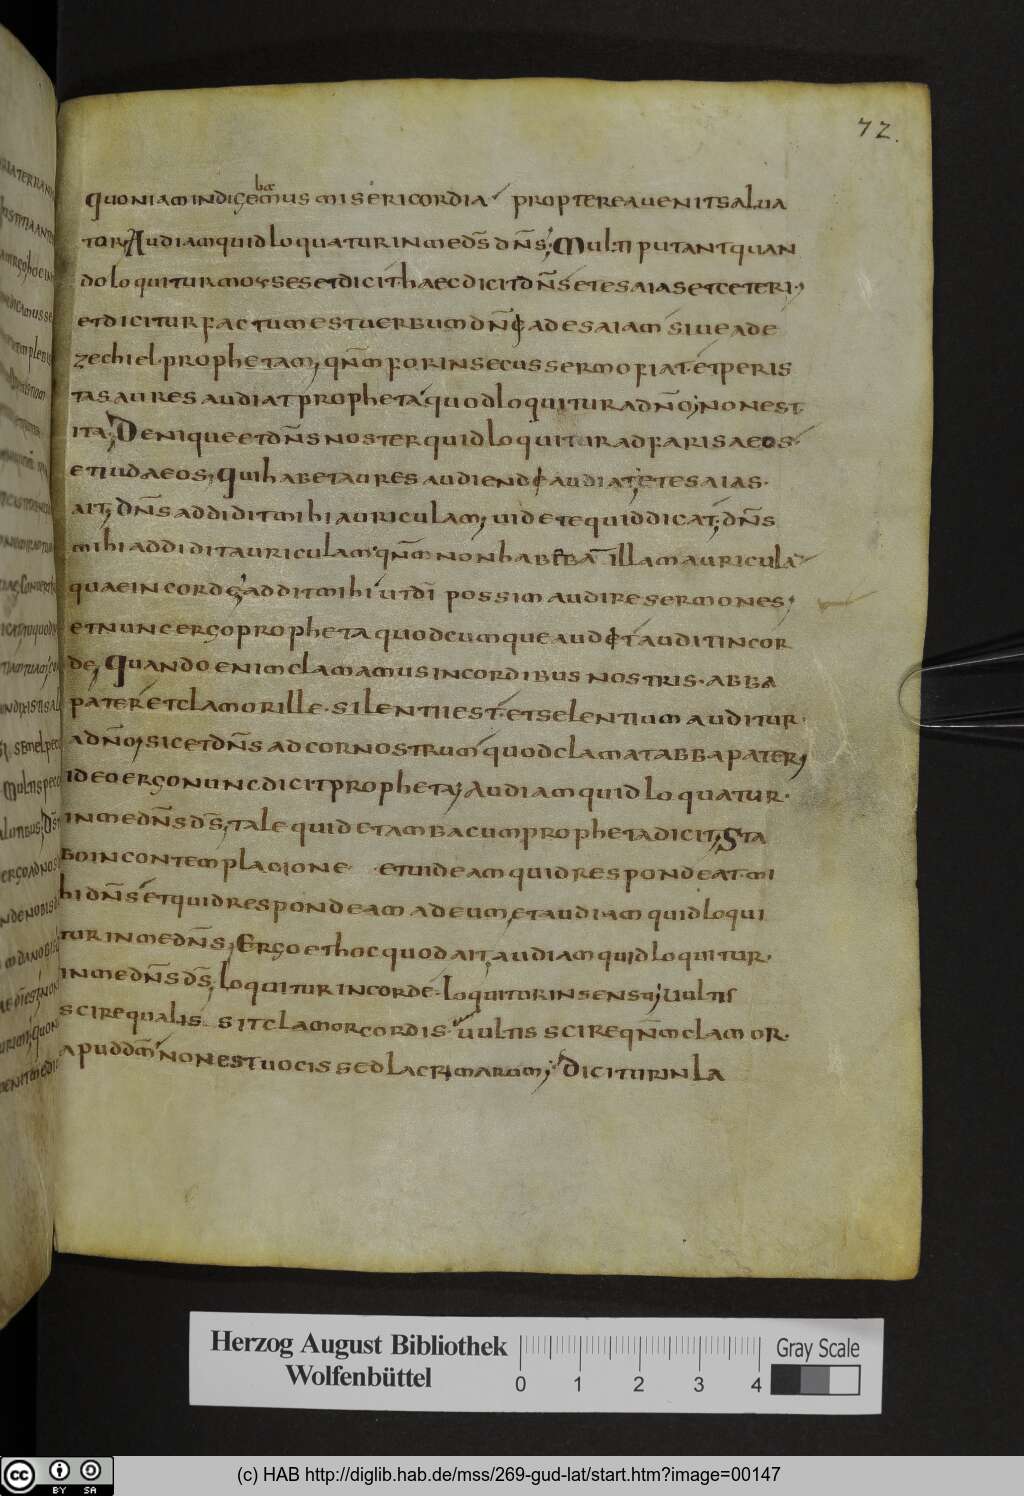 72.
quoniam indigebamus misericordia propterea uenit salua
tor; Audiam quid loquatur in me ds̄ dn̄s; Multi putant quan
do loquitur moyses et dicit haec dicit dn̄s et esaias et ceteri;
et dicitur factum est uerbum dn̄i ad esaiam siue ad e
zechiel prophetam, qn̄m forinsecus sermo fiat et per is
tas aures audiat propheta quod loquitur a dn̄o; non est
ita; Denique et dn̄s noster quid loquitur ad farisaeos
et iudaeos, qui habet aures audiendi audiat; et esaias
ait, dn̄s addidit mihi auriculam, uidete quid dicat; dn̄s
mihi addidit auriculam qn̄m non habebā illam auriculā
quae in corde addit mihi ut dī possim audire sermones;
et nunc ergo propheta quodcumque audit audit in cor
de; Quando enim clamamus in cordibus nostris abba
pater et clamor ille silentii est et selentium auditur
a dn̄o; sic et dn̄s ad cor nostrum quod clamat abba pater;
ideo ergo nunc dicit propheta; Audiam quid loquatur
in me dn̄s ds̄; tale quid et ambacum propheta dicit; Sta
bo in contemplatione et uideam quid respondeat mi
hi dn̄s et quid respondeam ad eum, et audiam quid loqui
tur in me dn̄s; Ergo et hoc quod ait, audiam quid loquitur
in me dn̄s ds̄, loquitur in corde loquitur in sensu; Uultis
scire qualis sit clamor cordis uultis scire qn̄m clamor
apud dm̄ non est uocis sed lacrimarum; Dicitur in la
Herzog August Bibliothek
Wolfenbüttel
0 1 2 3 4
Gray Scale
cc BY SA
(c) HAB http://diglib.hab.de/mss/269-gud-lat/start.htm?image=00147